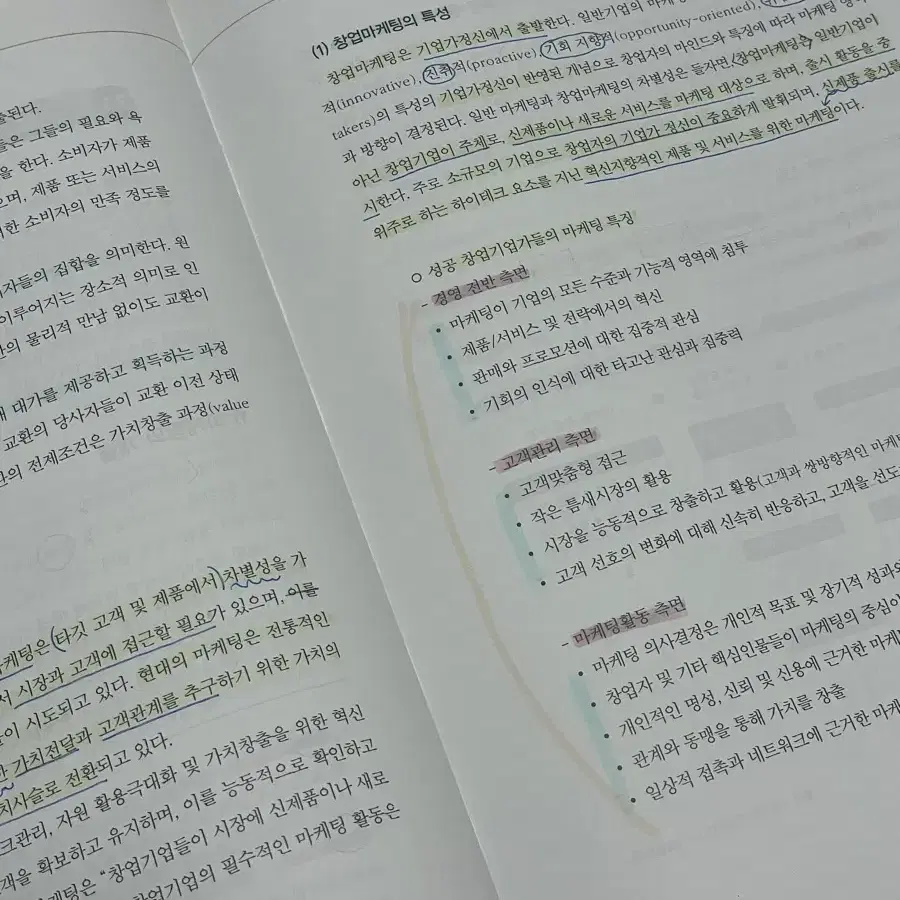 출된다.
들은 그들의 필요와 욕
을 한다. 소비자가 제품
으며, 제품 또는 서비스의
한 소비자의 만족 정도를
자들의 집합을 의미한다. 원
이루어지는 장소적 의미로 인
의 물리적 만남 없이도 교환이
대가를 제공하고 획득하는 과정
교환의 당사자들이 교환 이전 상태
의 전제조건은 가치창출 과정(value
케팅은(타깃 고객 및 제품에서) 차별성을 가
서 시장과 고객에 접근할 필요가 있으며, 이를
이 시도되고 있다. 현대의 마케팅은 전통적인
가치전달과 고객관계를 추구하기 위한 가치의
치사슬로 전환되고 있다.
크관리, 자원 활용극대화 및 가치창출을 위한 혁신
객을 확보하고 유지하며, 이를 능동적으로 확인하고
케팅은 “창업기업들이 시장에 신제품이나 새로
창업기업의 필수적인 마케팅 활동은
(1) 창업마케팅의 특성
창업마케팅은 기업가정신에서 출발한다. 일반기업의 마케
적(innovative), 진취적(proactive), 기회 지향적(opportunity-oriented),
takers)의 특성의 기업가정신이 반영된 개념으로 창업자의 마인드와 특징에 따라 마케팅
과 방향이 결정된다. 일반 마케팅과 창업마케팅의 차별성은 들자면, 창업마케팅은 일반기업이
아닌 창업기업이 주체로, 신제품이나 새로운 서비스를 마케팅 대상으로 하며, 출시 활동을 중
시한다. 주로 소규모의 기업으로 창업자의 기업가 정신이 중요하게 발휘되며, 신제품 출시를
위주로 하는 하이테크 요소를 지닌 혁신지향적인 제품 및 서비스를 위한 마케팅이다.
○ 성공 창업기업가들의 마케팅 특징
- 경영 전반 측면
• 마케팅이 기업의 모든 수준과 기능적 영역에 침투
• 제품/서비스 및 전략에서의 혁신
• 판매와 프로모션에 대한 집중적 관심
• 기회의 인식에 대한 타고난 관심과 집중력
- 고객관리 측면
• 고객맞춤형 접근
• 작은 틈새시장의 활용
• 시장을 능동적으로 창출하고 활용(고객과 쌍방향적인 마케팅
• 고객 선호의 변화에 대해 신속히 반응하고, 고객을 선도
- 마케팅활동 측면
• 마케팅 의사결정은 개인적 목표 및 장기적 성과와
• 창업자 및 기타 핵심인물들이 마케팅의 중심이
• 개인적인 명성, 신뢰 및 신용에 근거한 마케
• 관계와 동맹을 통해 가치를 창출
• 일상적 접촉과 네트워크에 근거한 마케